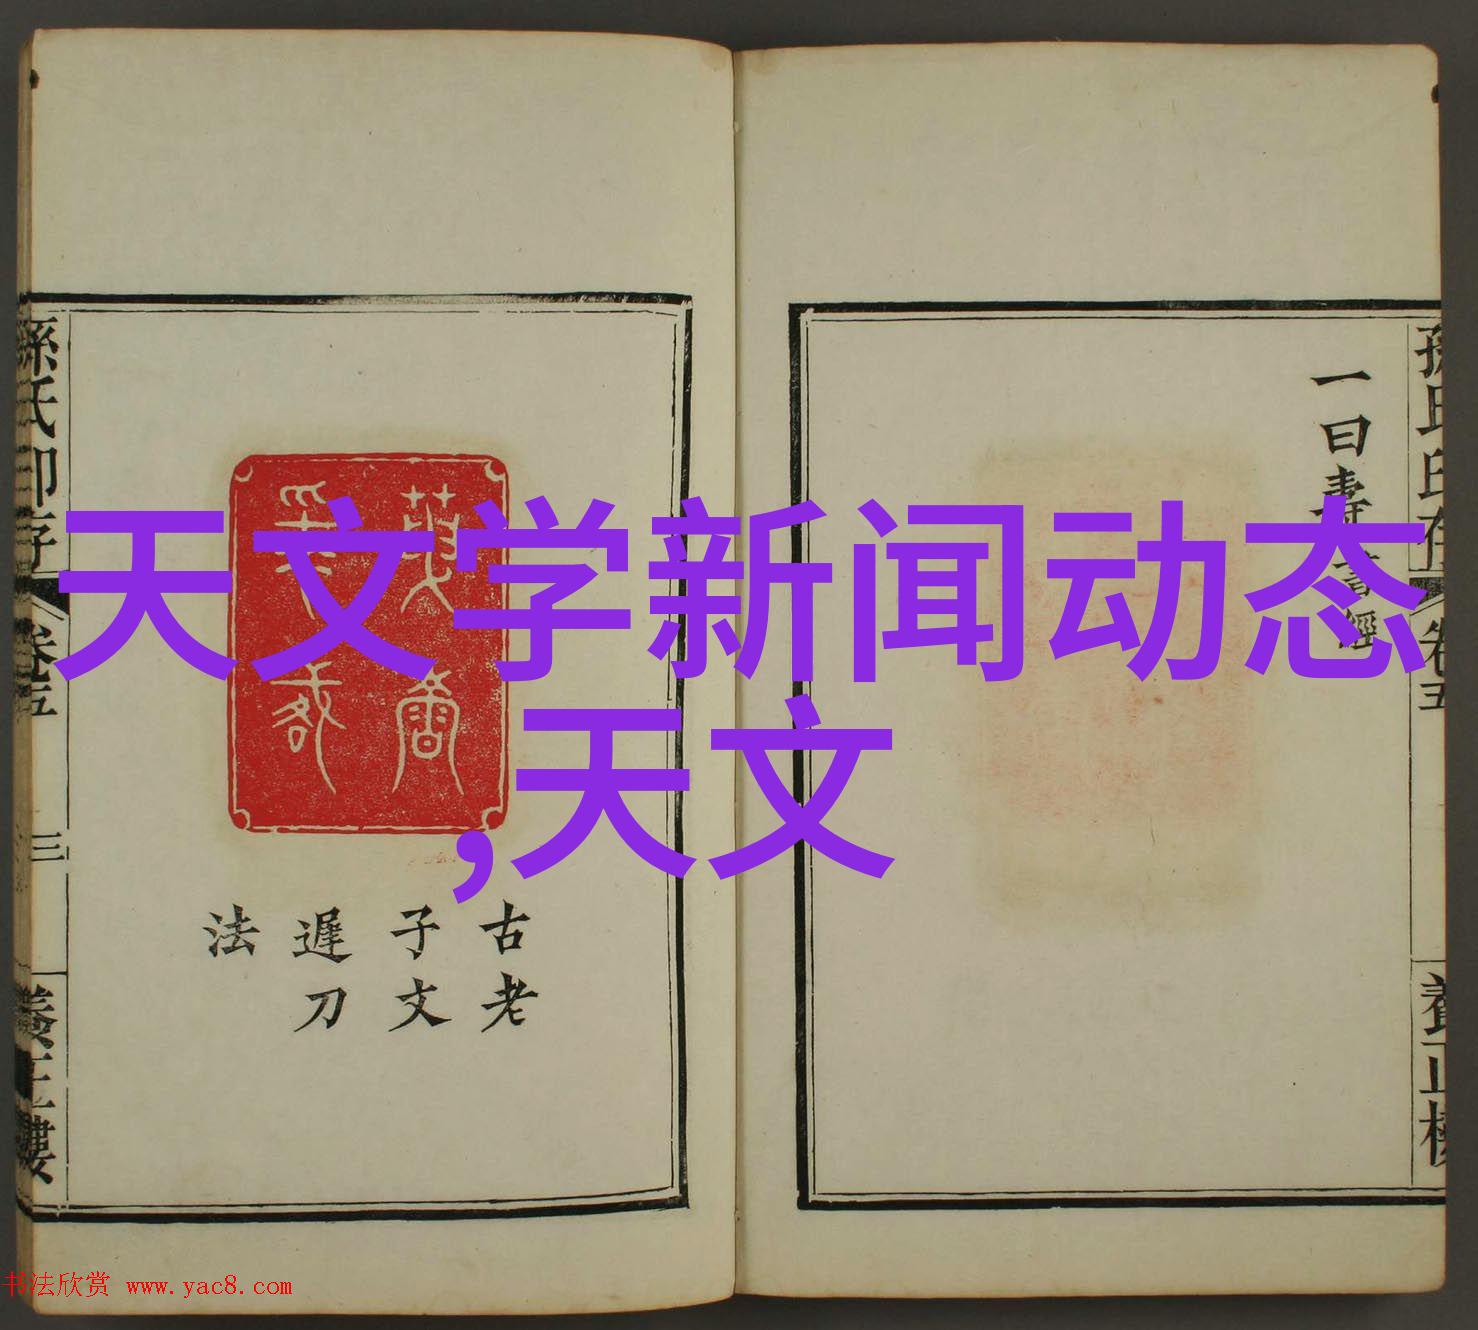 天文学新闻动态
,天文
孫氏印存
卷五
三
養正樓
古老
子文
遲刀
法
一曰壽
孫氏印存
卷五
養正樓
书法欣赏 www.yac8.com